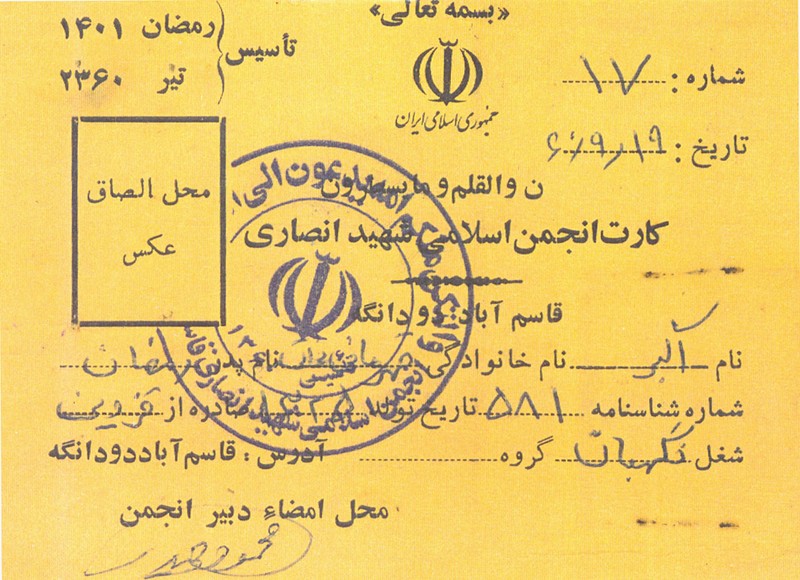 «بسمه تعالی»
تأسیس
رمضان ۱۴۰۱
تیر ۲۳۶۰
جمهوری اسلامی ایران
شماره : ۱۷
تاریخ :
محل الصاق
عکس
ن والقلم و ما یسطرون
کارت انجمن اسلامی شهید انصاری
قاسم آباد دودانگه
نام اکبر نام خانوادگی نام پدر
شماره شناسنامه ۵۸۱ تاریخ تولد صادره از قزوین
شغل نگهبان گروه آدرس : قاسم آباد دودانگه
محل امضاء دبیر انجمن
انجمن اسلامی شهید انصاری